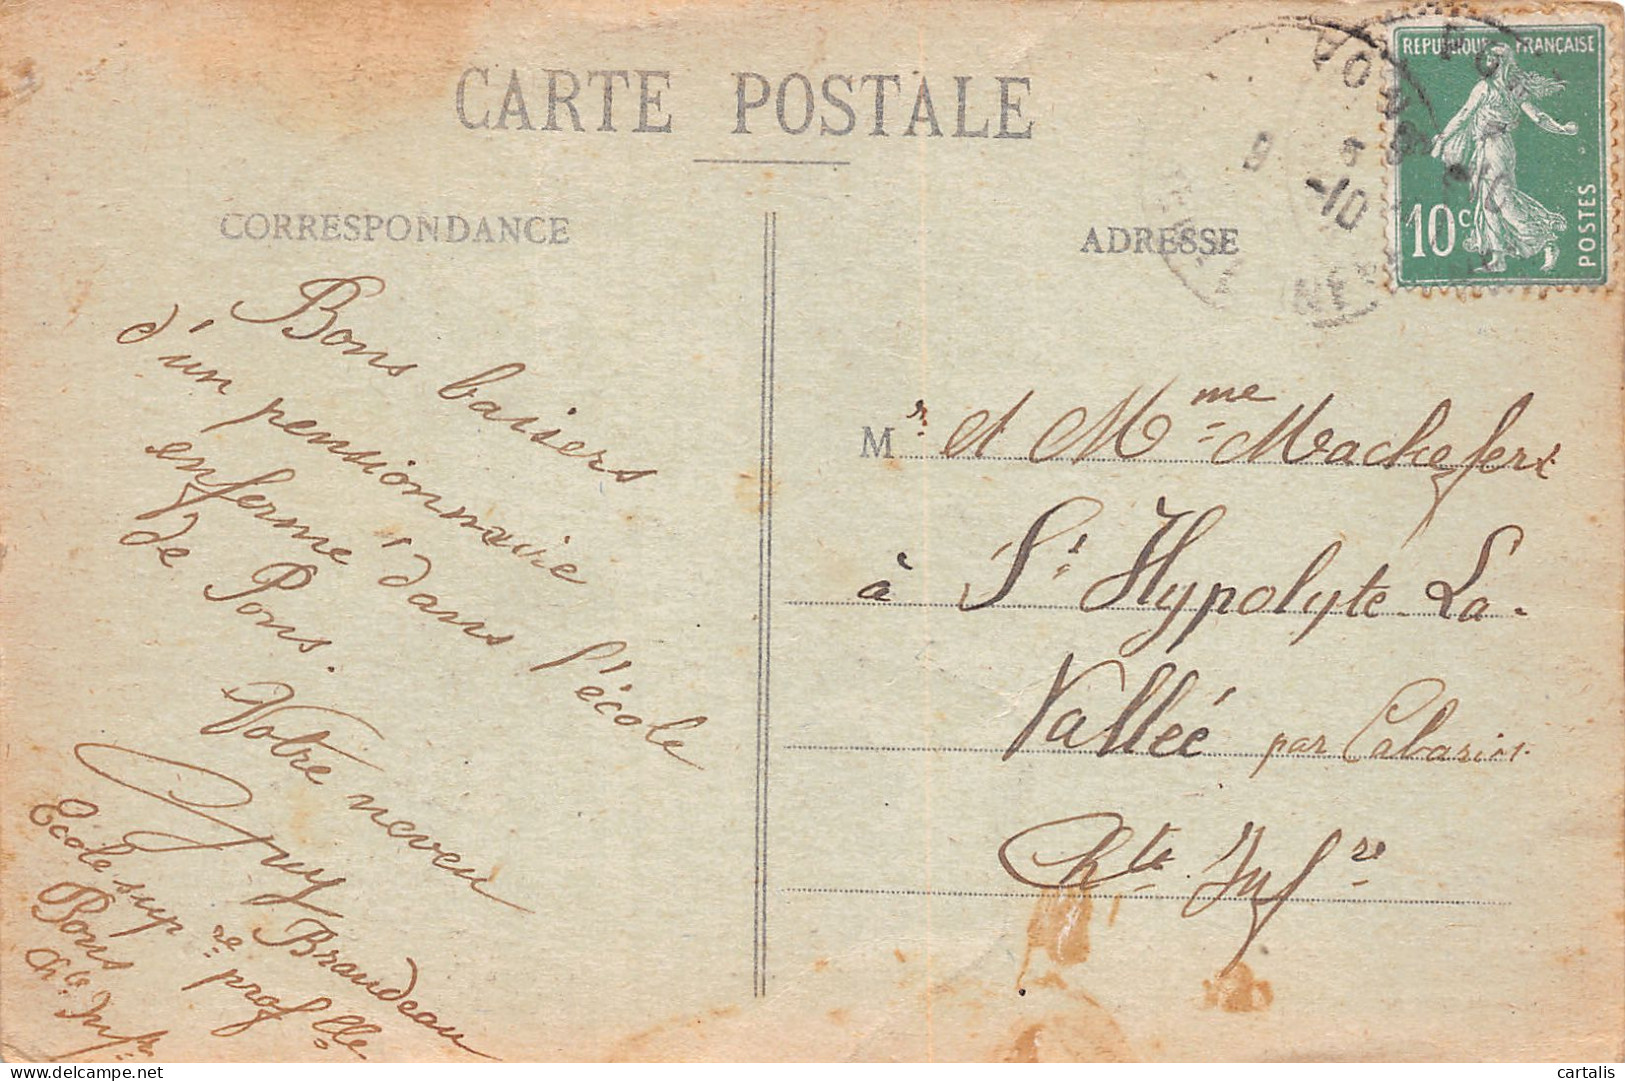 CARTE POSTALE
CORRESPONDANCE
Bons baisers
d'un pensionnaire
enfermé dans l'école
de Pons.
Votre neveu
Guy Braudeau
Ecole sup.re prof.lle
Pons
Ch.te Inf.re
REPUBLIQUE FRANÇAISE
10c
POSTES
9
-10
ADRESSE
Mr et Mme Machefert
à St Hypolyte-La-
Vallée par Cabariot
Chte Infre
cartalis
delcampe.net